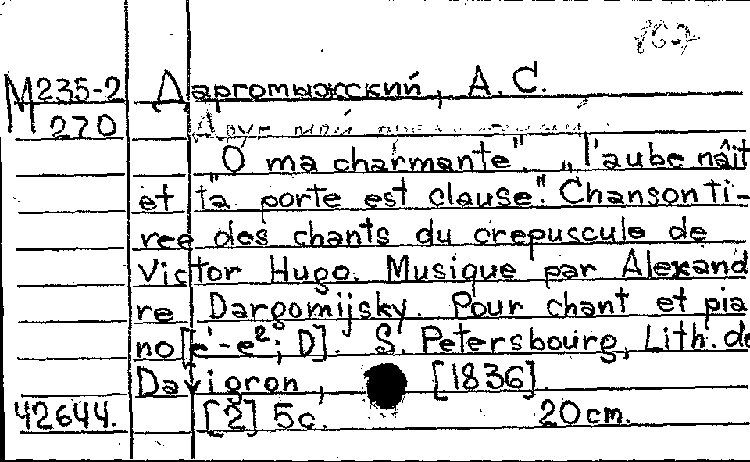 М235-2 Даргомыжский, А.С.
270 Друг мой
"O ma charmante". „l'aube nâit
et ta porte est clause". Chanson ti-
ree des chants du crepuscule de
Victor Hugo. Musique par Alexand
re Dargomijsky. Pour chant et pia
no [e¹-e²; D]. S. Petersbourg, Lith. de
Davignon, [1836].
42644. [2] 5с. 20 cm.